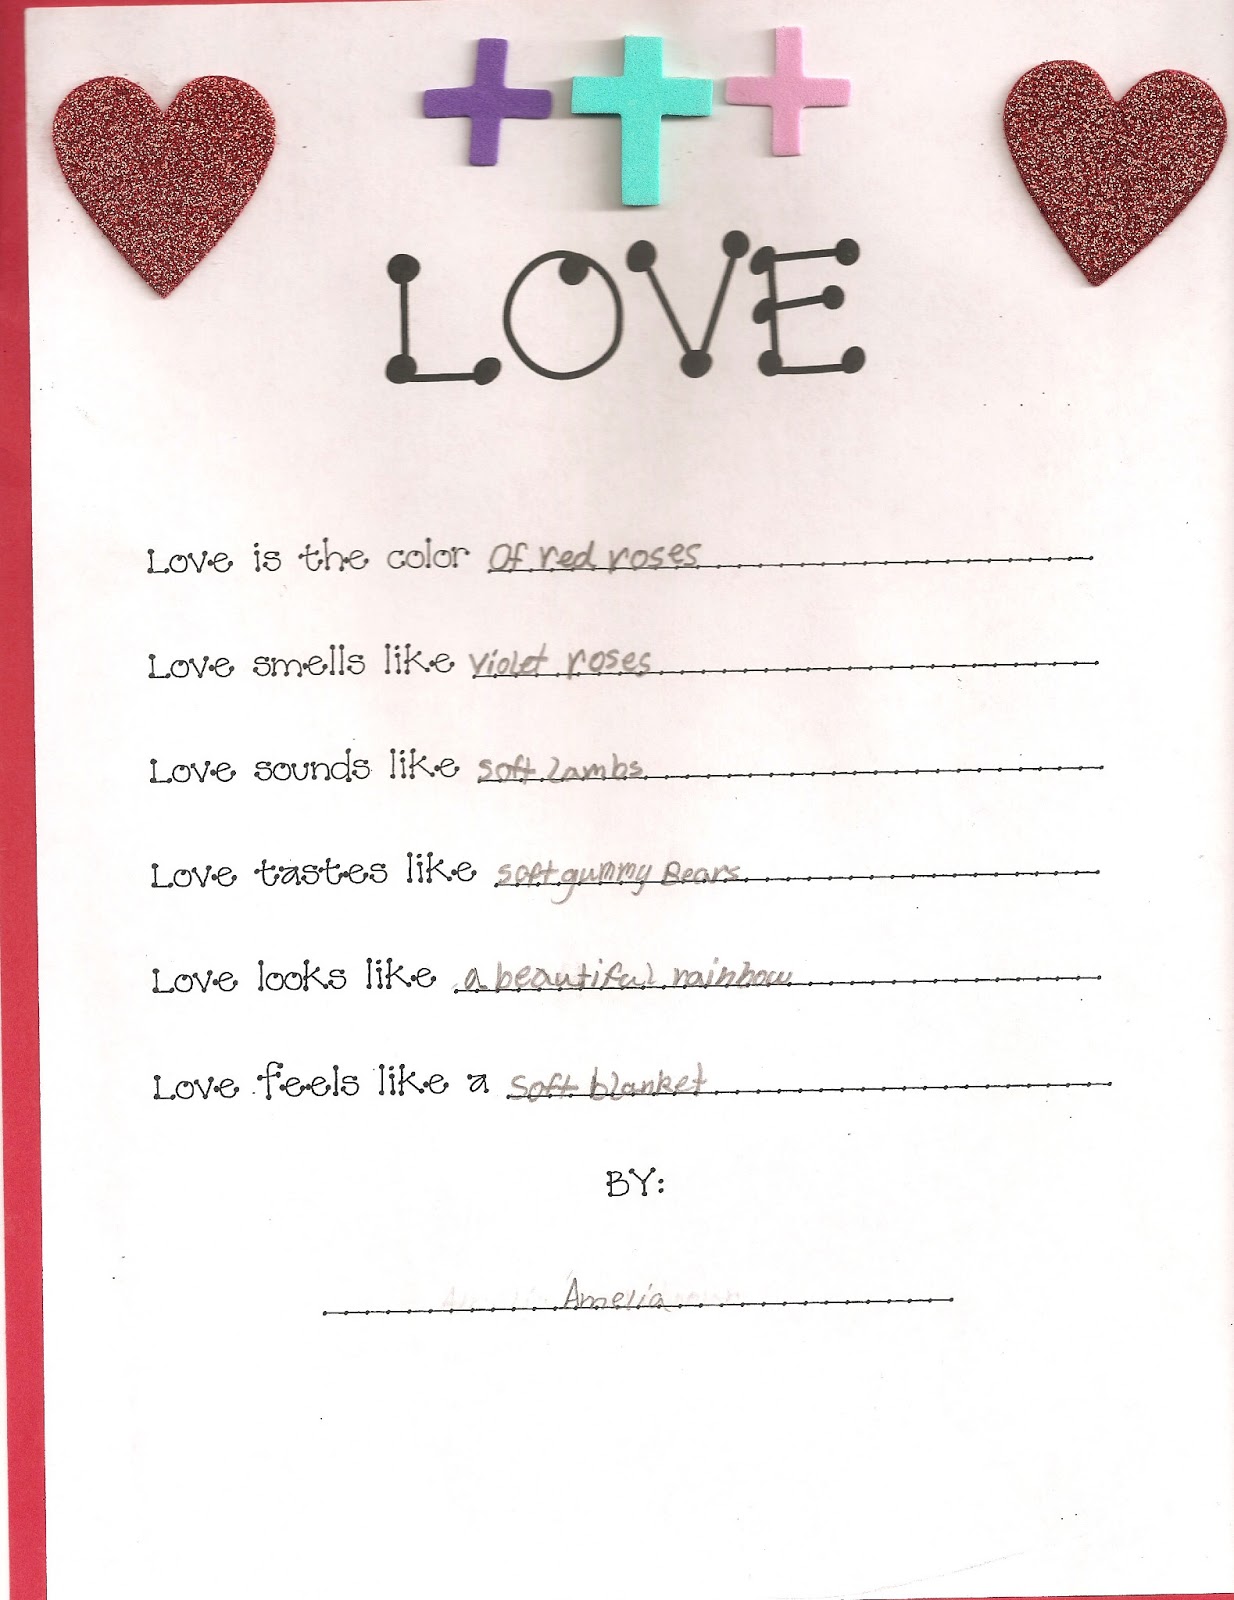 LOVE
Love is the color Of red roses
Love smells like violet roses
Love sounds like soft lambs
Love tastes like soft gummy Bears
Love looks like a beautiful rainbow
Love feels like a soft blanket
BY:
Amelia